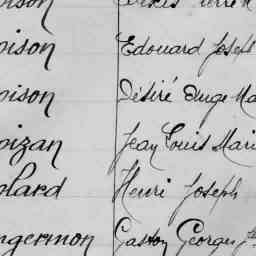 oison
oison Edouard Joseph
oison Désiré Ange Ma
oizan Jean Louis Mari
olard Henri Joseph
ngermon Gaston Georges